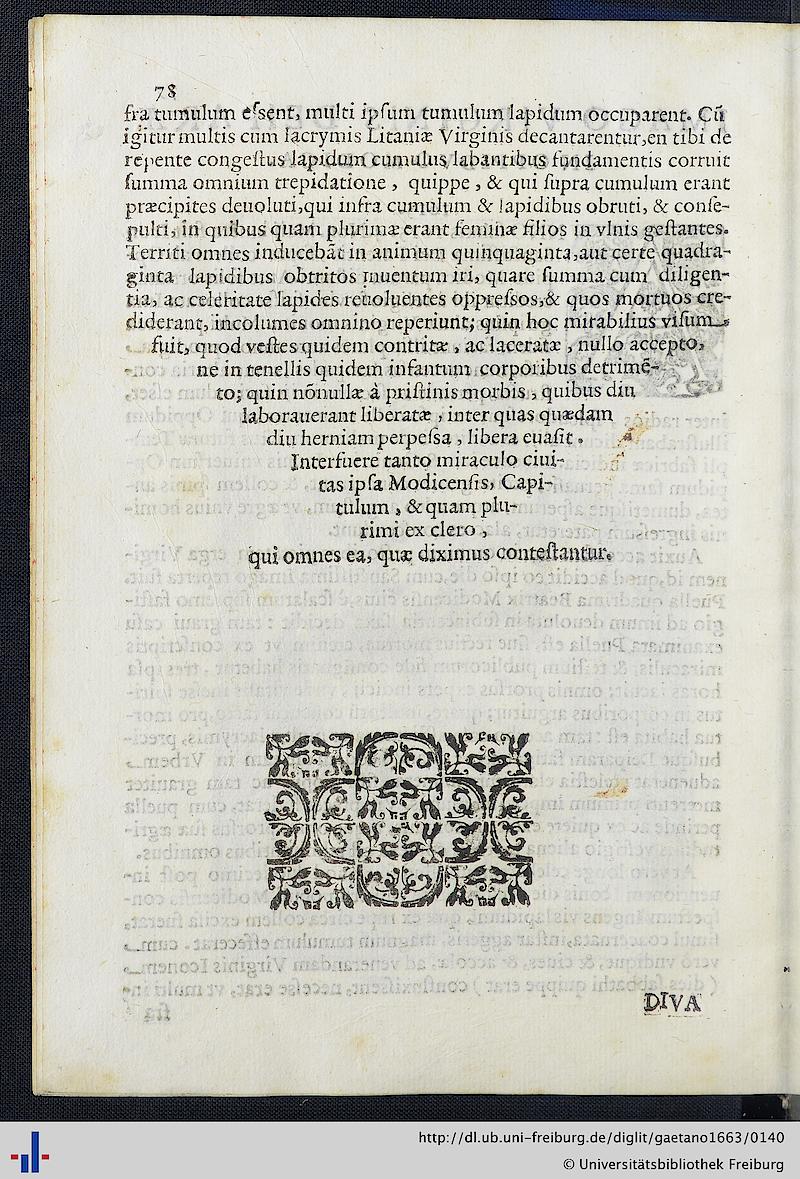 78
fra tumulum eſsent, multi ipſum tumulum lapidum occuparent. Cũ
igitur multis cum lacrymis Litaniæ Virginis decantarentur, en tibi de
repente congeſtus lapidum cumulus labantibus fundamentis corruit
ſumma omnium trepidatione, quippe, & qui ſupra cumulum erant
præcipites deuoluti, qui infra cumulum & lapidibus obruti, & conſe-
pulti, in quibus quam plurimæ erant feminæ filios in vlnis geſtantes.
Territi omnes inducebãt in animum quinquaginta, aut certe quadra-
ginta lapidibus obtritos inuentum iri, quare ſumma cum diligen-
tia, ac celeritate lapides reuoluentes oppreſsos, & quos mortuos cre-
diderant, incolumes omnino reperiunt; quin hoc mirabilius viſum
fuit, quod veſtes quidem contritæ, ac laceratæ, nullo accepto,
ne in tenellis quidem infantum corporibus detrimẽ-
to; quin nõnullæ à priſtinis morbis, quibus diu
laborauerant liberatæ, inter quas quædam
diu herniam perpeſsa, libera euaſit.
Interfuere tanto miraculo ciui-
tas ipſa Modicenſis, Capi-
tulum, & quam plu-
rimi ex clero,
qui omnes ea, quæ diximus conteſtantur.
DIVA
http://dl.ub.uni-freiburg.de/diglit/gaetano1663/0140
© Universitätsbibliothek Freiburg